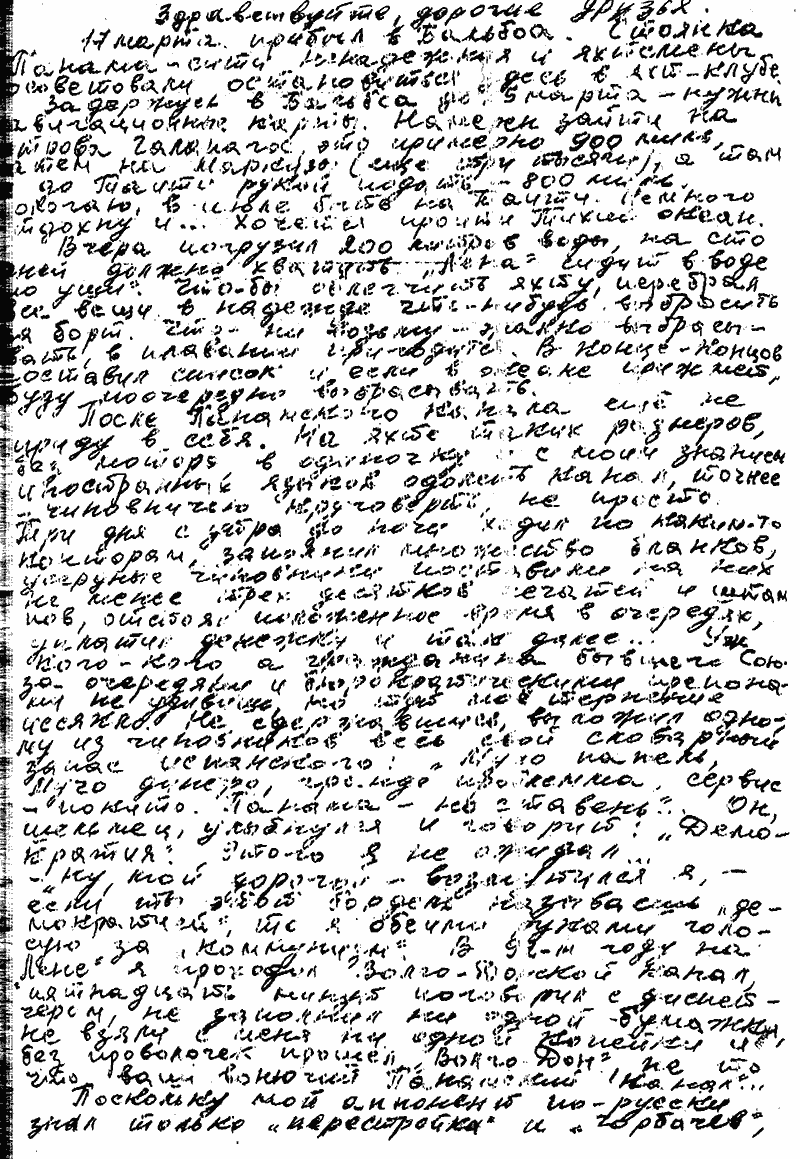 Здравствуйте, дорогие друзья.
17 марта прибыл в Бальбоа. Стоянка
Панама-сити ненадежная и яхтсмены
советовали остановиться здесь в яхт-клубе.
Задержусь в Бальбоа до 25 марта - нужны
навигационные карты. Намерен зайти на
острова Галапагос, это примерно 900 миль,
затем на Маркизы (еще три тысячи), а там
до Таити рукой подать - 800 миль.
в июле быть на Таити. Немного
отдохну и... Хочется пройти Тихий океан.
Вчера погрузил 200 литров воды, на сто
дней должно хватить. "Лена" сидит в воде
по уши. Что-бы облегчить яхту, перебрал
все вещи в надежде что-нибудь выбросить
за борт. Что-ни возьму - жалко выбрасы-
вать, в плавании пригодится. В конце-концов
составил список и если в океане прижмет,
буду поочередно выбрасывать.
После Панамского канала ещё не
приду в себя. На яхте таких размеров,
без мотора в одиночку и с моим знанием
иностранных языков одолеть канал, точнее
- чиновничью круговерть, не просто.
Три дня с утра до ночи ходил по каким-то
конторам, заполнил множество бланков,
чиновники поставили на них
не менее трех десятков печатей и штам
пов, отстоял положенное время в очередях,
уплатил денежку и так далее... Уж
кого-кого а гражданина бывшего Сою-
за очередями и бюрократическими препона-
ми не удивишь, но тут моё терпение
иссякло. Не сдержавшись, выложил одно-
му из чиновников весь свой скобарный
запас испанского: "Мучо папель,
мучо динеро, гранде проблемма, сервис
- покито. Панама - но ста вень". Он,
шельмец, улыбнулся и говорит: "Демо-
кратия". Этого я не ожидал...
- "Ну, мой дорогой - возмутился я, -
если ты этот бордель называешь "де-
мократией", то я обеими руками голо-
сую за "коммунизм". В 92-м году на
"Лене" я проходил Волго-Донской канал,
пятнадцать минут поговорил с диспет-
чером, не заполнил ни одной бумажки,
не взяли с меня ни одной копейки и
без проволочек прошел "Волго-Дон", не то
что ваш вонючий Панамский канал"...
Поскольку мой оппонент по-русски
знал только "перестройка" и "Горбачев",